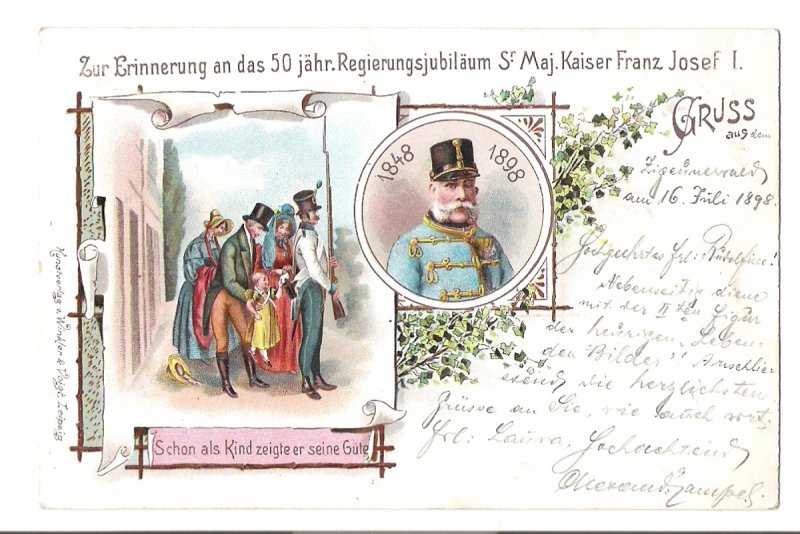 Zur Erinnerung an das 50 jähr. Regierungsjubiläum Sr. Maj. Kaiser Franz Josef I.
1848 1898
GRUSS
aus dem
Zigeunerwald
am 16. Juli 1898.
Hochgeehrtes Frl: Rudolfine!
mit der IIten Figur
der heurigen "Leben-
den Bilder"! Anschlie-
ssend die herzlichsten
Grüsse an Sie, wie auch
Frl: Laura, Hochachtend
Schon als Kind zeigte er seine Güte
Kunstverlag v. Winkler & Voigt, Leipzig